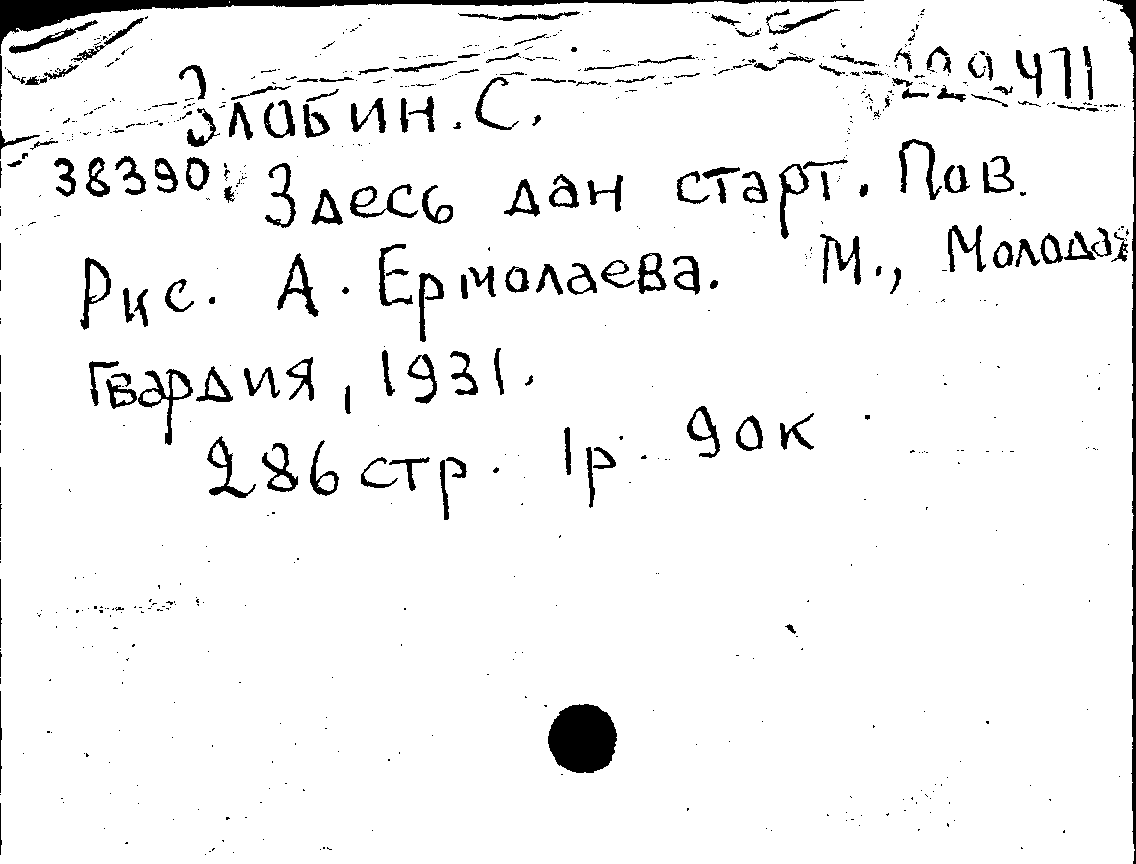 222471
Злобин. С.
38390. Здесь дан старт. Пов.
Рис. А. Ермолаева. М., Молодая
Гвардия, 1931.
286 стр. 1р. 90к